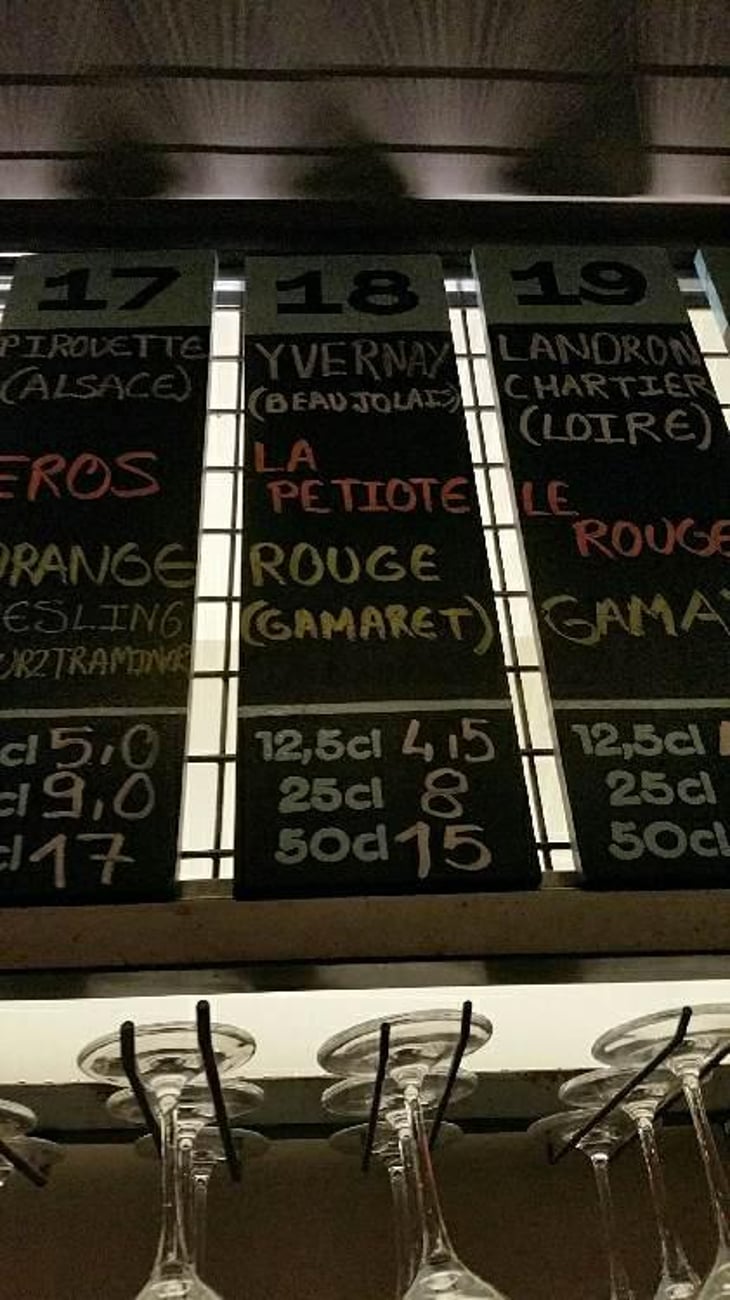 17
PIROUETTE
(ALSACE)
EROS
ORANGE
ESLING
URZTRAMINER
cl 5,0
cl 9,0
cl 17
18
YVERNAY
(BEAUJOLAIS)
LA
PETIOTE
ROUGE
(GAMARET)
12,5cl 4,5
25cl 8
50cl 15
19
LANDRON
CHARTIER
(LOIRE)
LE
ROUGE
GAMAY
12,5cl
25cl
50cl